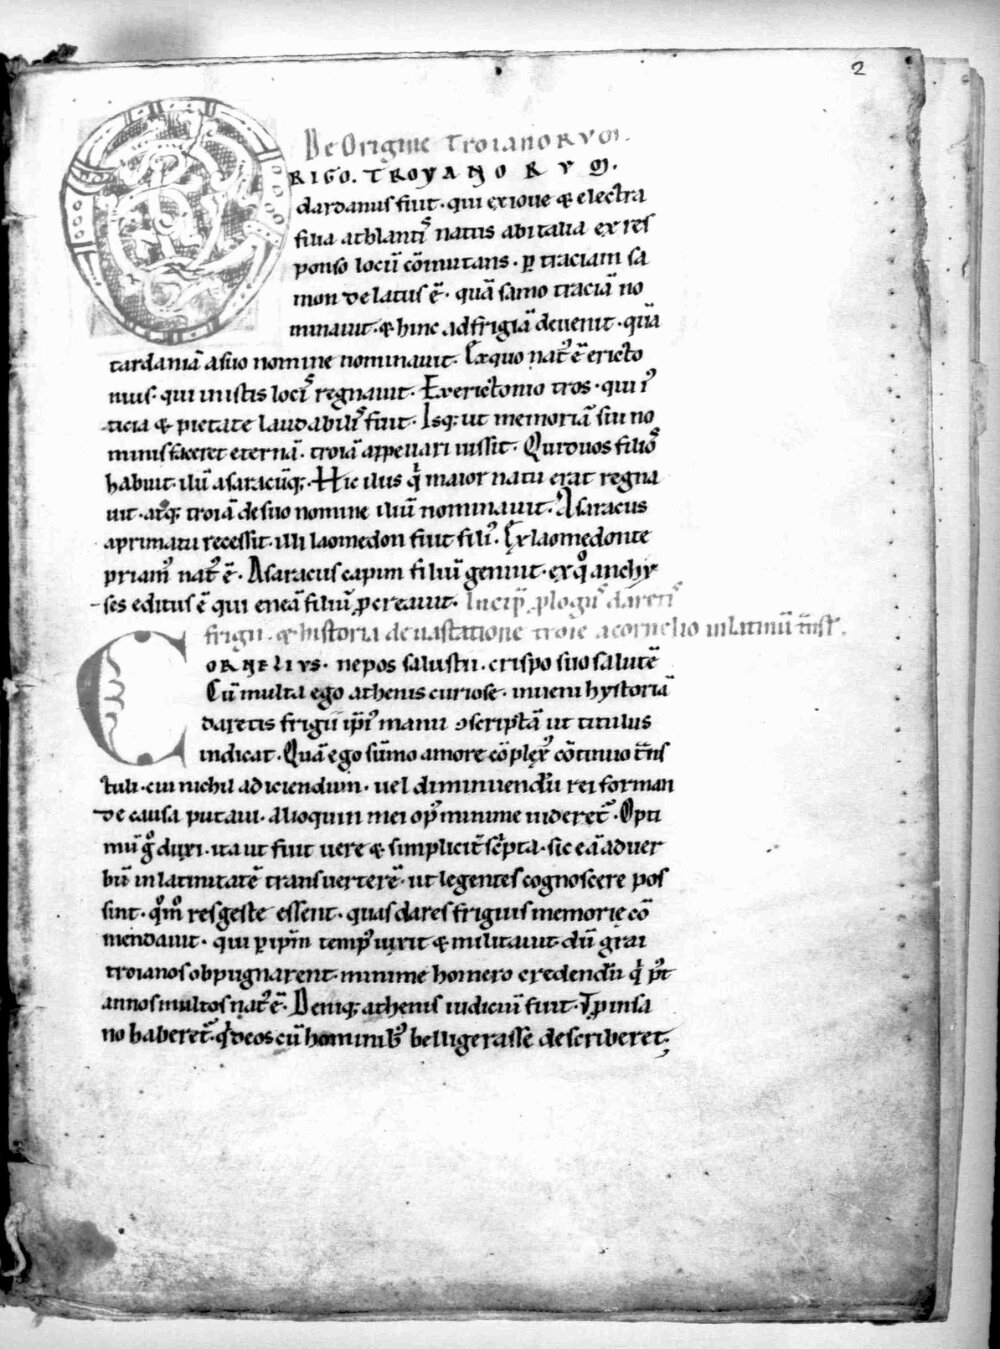 2
De Origine TroianoRVM.
ORIGO. TROYANORVM.
dardanus fuit. qui ex ioue & electra
filia athlantis natus ab italia ex res
ponso locū cōmutans. ꝑ traciam sa
mon delatus ē. quā samo traciā no
minauit. & hinc ad frigiā deuenit. quā
tardaniā a suo nomine nominauit. Ex quo nat᷒ ē ericto
nius. qui in istis locis regnauit. Ex erictonio tros. qui i᷒
ticia & pietate laudabilis fuit. Isq; ut memoriā sui no
minis faceret eternā. troiā appellari iussit. Qui duos filios
habuit. ilū asaracūq;. Hic ilus qͥ maior natu erat regna
uit. atq; troiā de suo nomine iliū nominauit. Asaracus
a primatu recessit. illi laomedon fiut fili᷒. Ex laomedonte
priam᷒ nat᷒ ē. Asaracus capim filiū genuit. ex qͦ anchy
ses editus ē qui eneā filiū ꝓcreauit. Incip̄ ꝓlogus daretis
frigii. & historia de uastatione troie a cornelio in latinū tͣnsł.
CORNELIVS. nepos salustii. crispo suo salutē
Cū multa ego athenis curiose. inueni hystoriā
daretis frigii ip̄i᷒ manu ꝯscriptā ut titulus
indicat. Quā ego sūmo amore cōplex᷒ cōtinuo tͣns
tuli. cui nichil adiciendum. uel diminuendū rei forman
de causa putaui. Alioquin mei op᷒ minime uideret᷑. Opti
mū gͦ duxi. ita ut fuit uere & simplicit᷑ sc̄pta. sic eā ad uer
bū in latinitatē transuerterē. ut legentes cognoscere pos
sint. qͦm̊ res geste essent. quas dares frigius memorie cō
mendauit. qui ꝑ ip̄m temp᷒ uixit & militauit. dū grai
troianos obpugnarent. minime homero credendū qͥ p᷒t
annos multos nat᷒ ē. Deniq; athenis iudiciū fuit. ꝓ insa
no haberet᷑. qd̄ deos cū hominib᷒ belligerasse describeret;